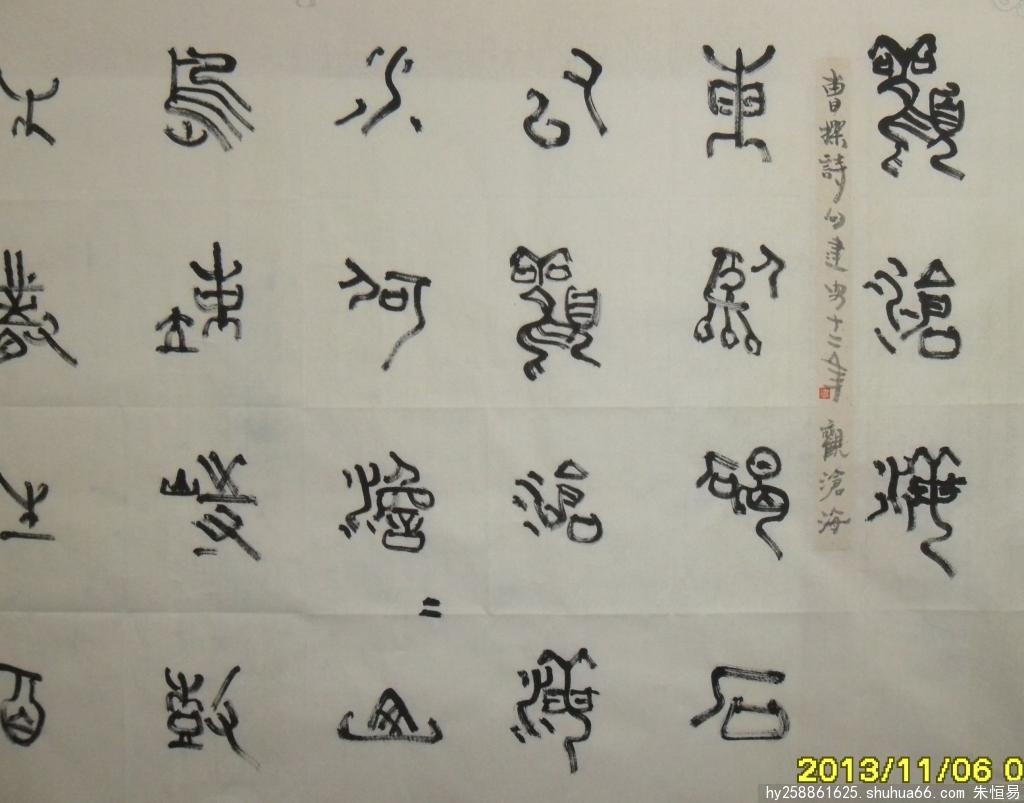 觀滄海
曹操詩句建安十二年 觀滄海
東臨碣石
以觀滄海
水何澹〻山
島竦峙樹
木叢生百
2013/11/06 0
hy258861625.shuhua66.com 朱恒易